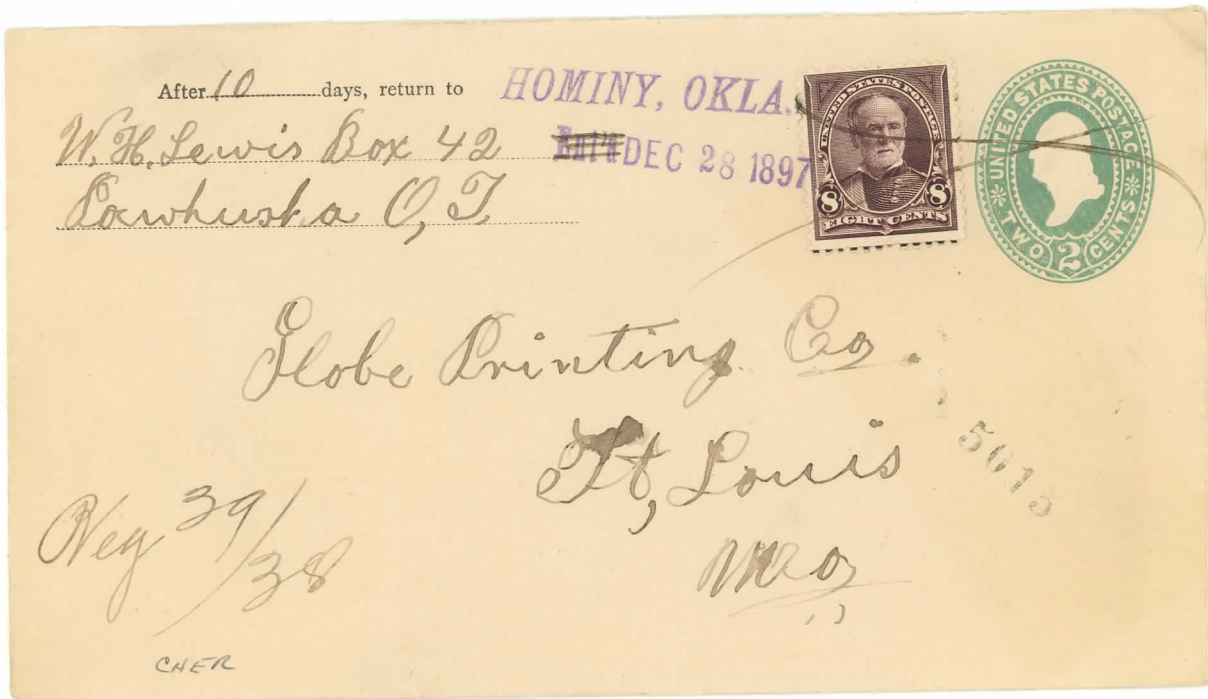 After 10 days, return to
W. H. Lewis Box 42
Pawhuska O, T
HOMINY, OKLA.
DEC 28 1897
UNITED STATES POSTAGE
8 8
EIGHT CENTS
UNITED STATES POSTAGE
TWO 2 CENTS
Globe Printing Co.
St, Louis
Mo
5015
Reg 39/38
CHER